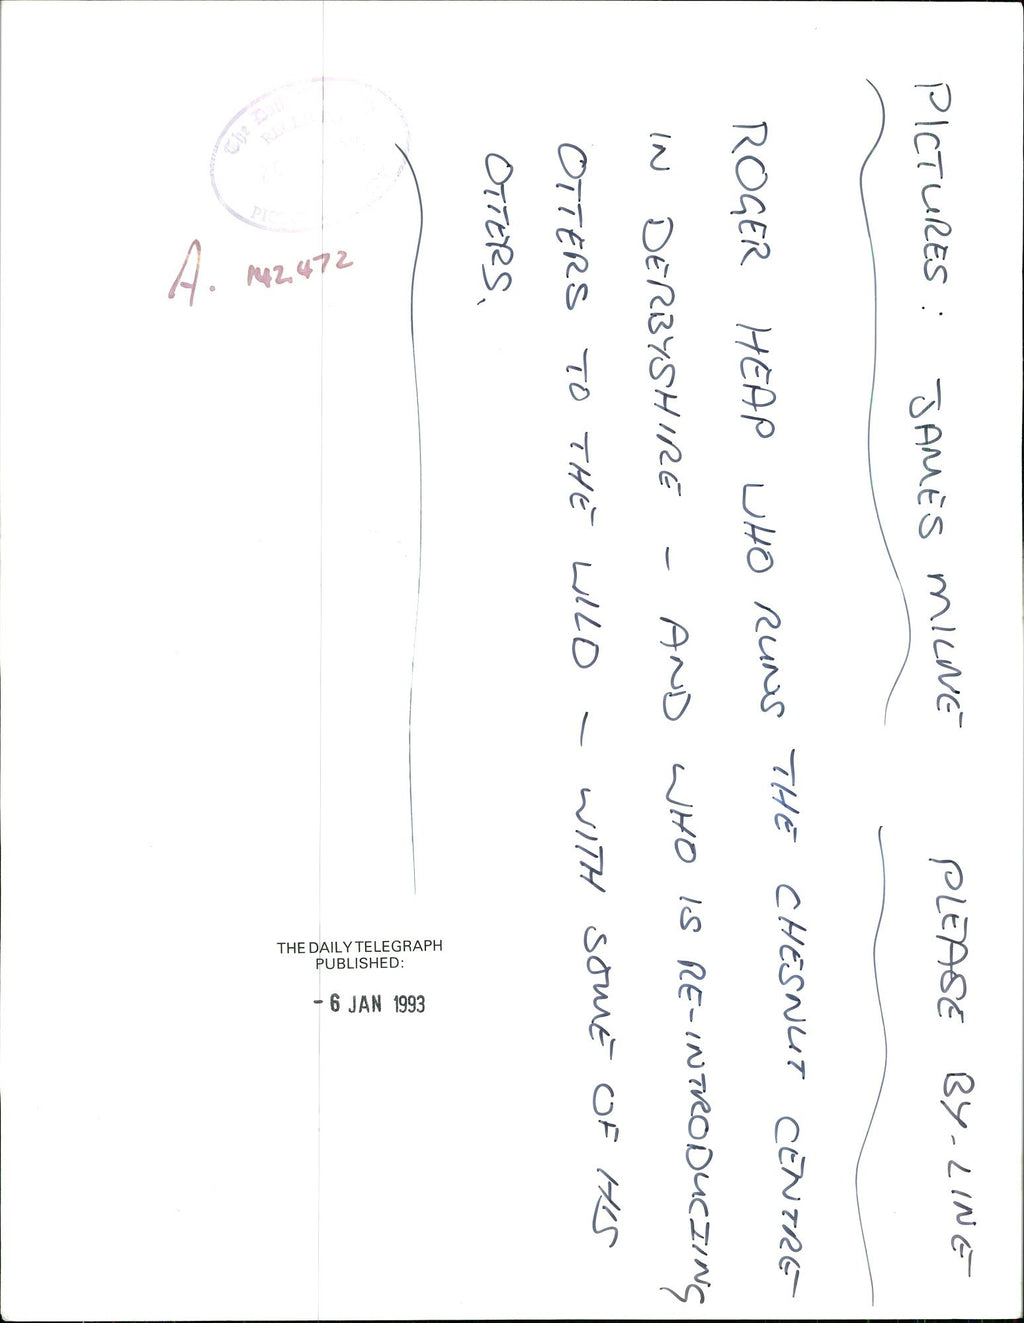 PICTURES: JAMES MILNE PLEASE BY-LINE
ROGER HEAP WHO RUNS THE CHESNUT CENTRE
IN DERBYSHIRE - AND WHO IS RE-INTRODUCING
OTTERS TO THE WILD - WITH SOME OF HIS
OTTERS.
The Dail
A. 142.472
THE DAILY TELEGRAPH
PUBLISHED:
-6 JAN 1993